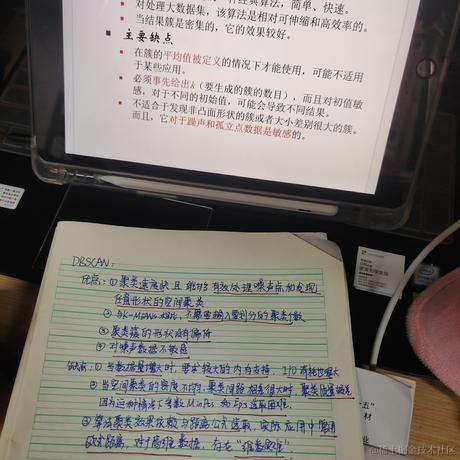 对处理大数据集，该算法是相对可伸缩和高效率的。
当结果簇是密集的，它的效果较好。
主要缺点
在簇的平均值被定义的情况下才能使用，可能不适用
于某些应用。
必须事先给出k（要生成的簇的数目），而且对初值敏
感，对于不同的初始值，可能会导致不同结果。
不适合于发现非凸面形状的簇或者大小差别很大的簇。
而且，它对于躁声和孤立点数据是敏感的。
DBSCAN:
优点：① 聚类速度快且能够有效处理噪声点和发现
任意形状的空间聚类
② 与K-Means相比，不需要输入要划分的聚类个数
③ 聚类簇的形状没有偏倚
④ 对噪声数据不敏感
缺点：① 当数据量增大时，要求较大的内存支持，I/O消耗也很大
② 当空间聚类的密度不均，聚类间距相差很大时，聚类质量较差
因为这种情况下参数MinPts和Eps选取困难
③ 算法聚类效果依赖与距离公式选取，实际应用中常用
欧式距离，对于高维数据，存在"维数灾难"
稀土掘金技术社区